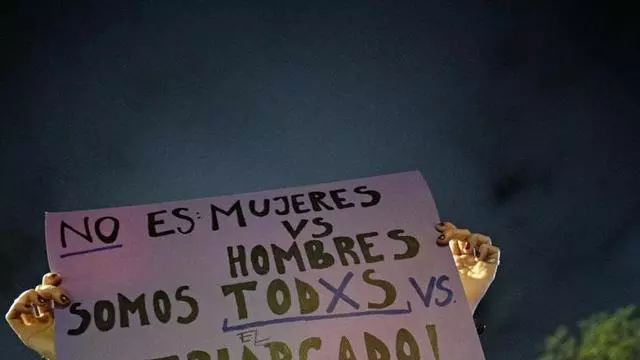 NO ES: MUJERES
VS
HOMBRES
SOMOS TODXS VS.
EL